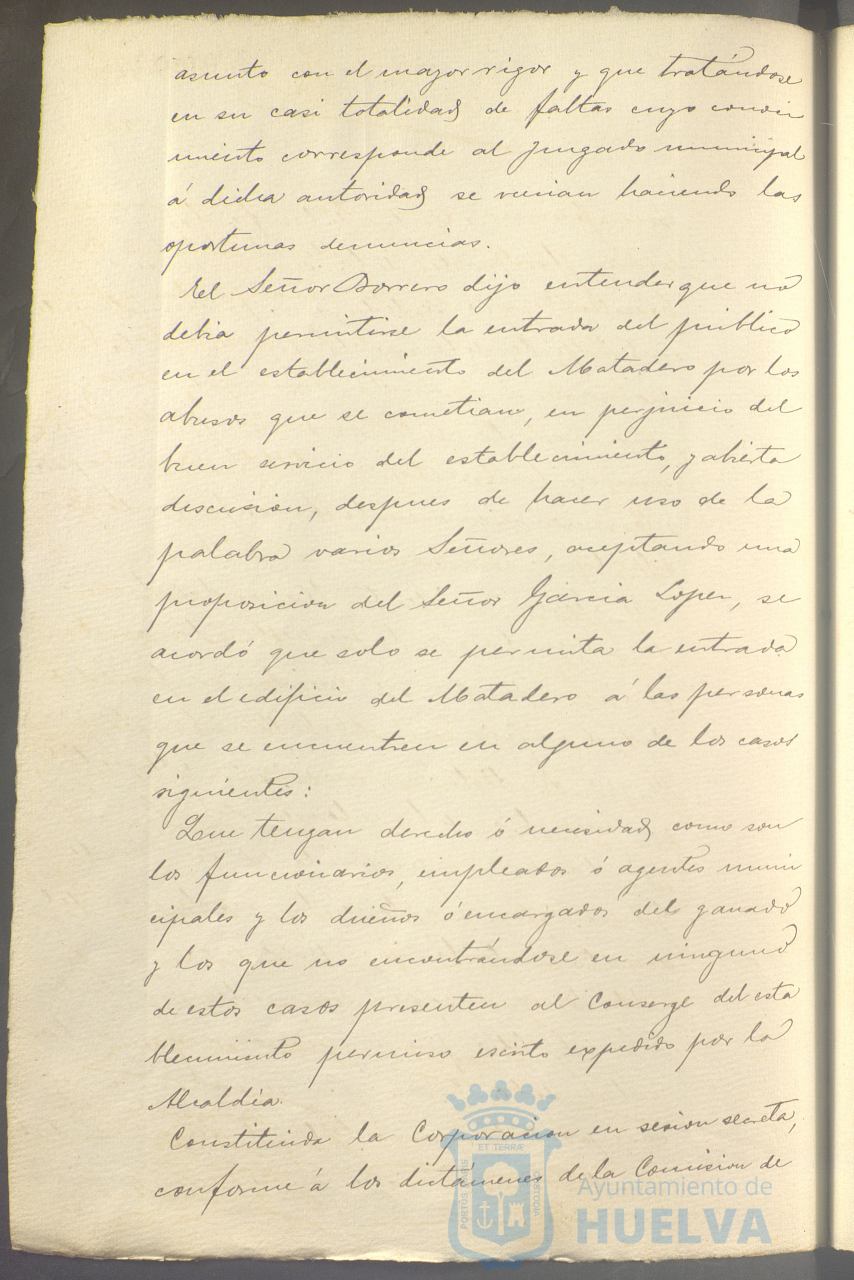 asunto con el mayor rigor y que tratándose
en su casi totalidad de faltas cuyo conoci
miento corresponde al Juzgado municipal
á dicha autoridad se venian haciendo las
oportunas denuncias.
El Señor Borrero dijo entender que no
debia permitirse la entrada del público
en el establecimiento del Matadero por los
abusos que se cometian, en perjuicio del
buen servicio del establecimiento, y abierta
discusion, despues de hacer uso de la
palabra varios Señores, aceptando una
proposicion del Señor Garcia Lopez, se
acordó que solo se permita la entrada
en el edificio del Matadero á las personas
que se encuentren en alguno de los casos
siguientes:
Que tengan derecho ó necesidad como son
los funcionarios, empleados ó agentes muni
cipales y los dueños ó encargados del ganado
y los que no encontrándose en ninguno
de estos casos presenten al Conserge del esta
blecimiento permiso escrito expedido por la
Alcaldia.
Constituida la Corporacion en sesion secreta,
conforme á los dictámenes de la Comision de
PORTUS MARIS ET TERRÆ CUSTODIA
Ayuntamiento de
HUELVA